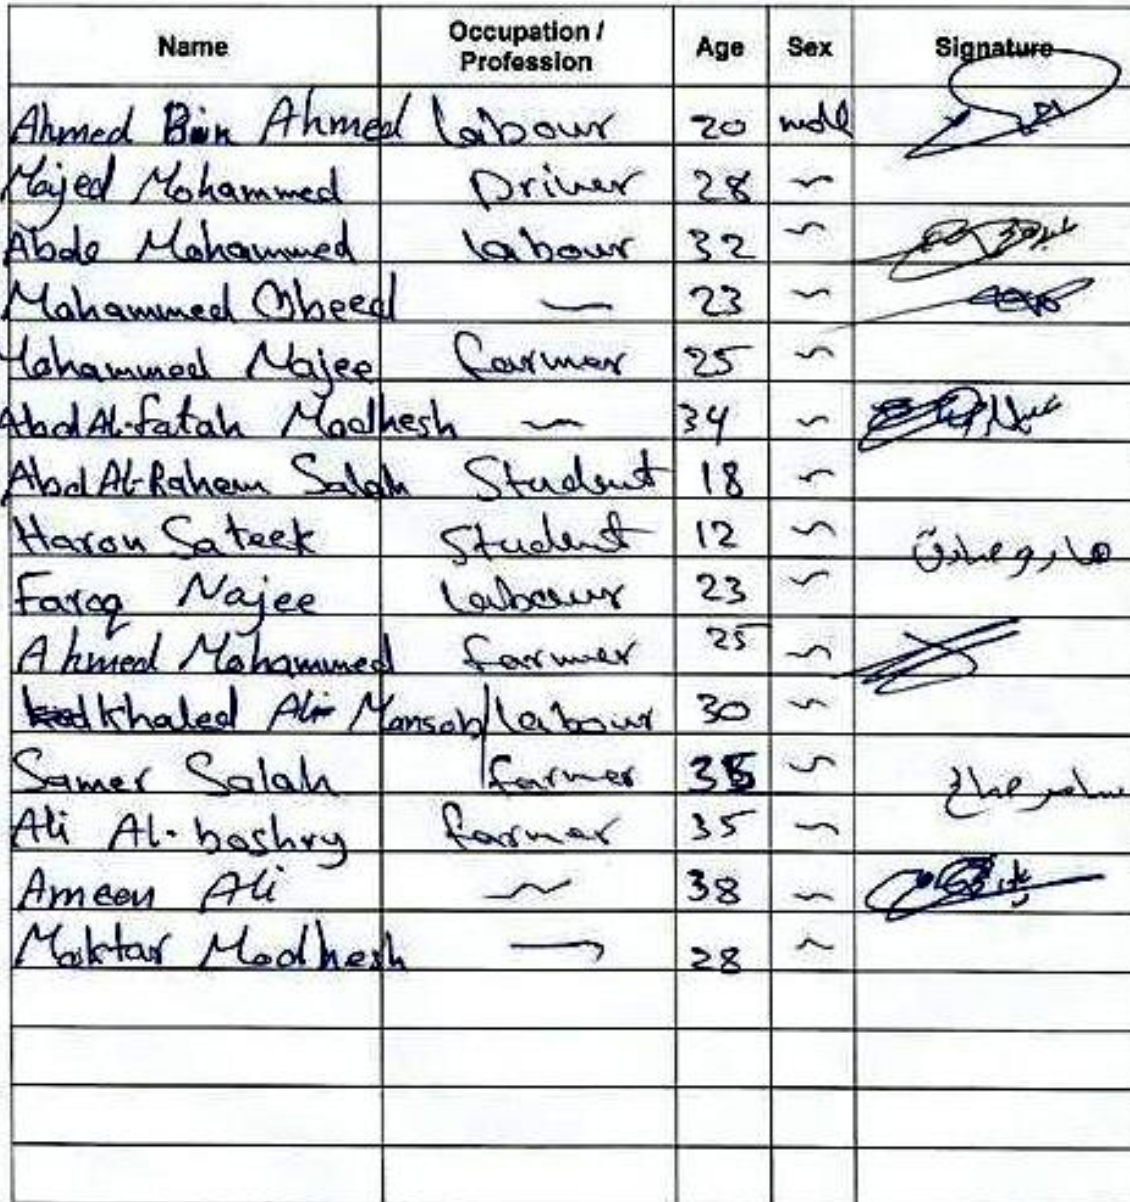 Name Occupation / Profession Age Sex Signature
Ahmed Bin Ahmed labour 20 male
Majed Mohammed Driver 28 ~
Abde Mohammed labour 32 ~
Mohammed Obeed ~ 23 ~
Mohammed Najee farmer 25 ~
Abd Al-fatah Modhesh ~ 34 ~
Abd Al-Rahem Salah Student 18 ~
Haron Sateek Student 12 ~ هارو صادق
Faroq Najee labour 23 ~
Ahmed Mohammed farmer 25 ~
khaled Ali Mansob/labour 30 ~
Samer Salah farmer 35 ~ سامر صلاح
Ali Al-boshry farmer 35 ~
Ameen Ali ~ 38 ~
Moktar Modhesh ~ 28 ~